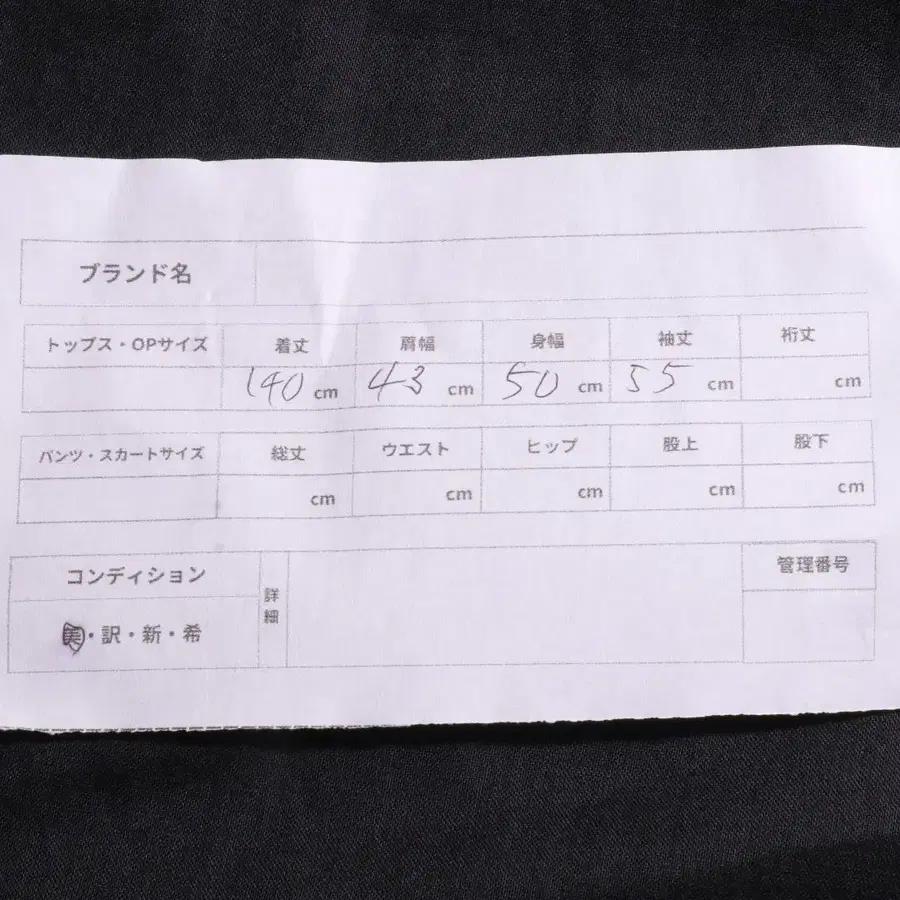 ブランド名
トップス・OPサイズ 着丈 肩幅 身幅 袖丈 裄丈
140 cm 43 cm 50 cm 55 cm cm
パンツ・スカートサイズ 総丈 ウエスト ヒップ 股上 股下
cm cm cm cm cm
コンディション 詳細 管理番号
美・訳・新・希